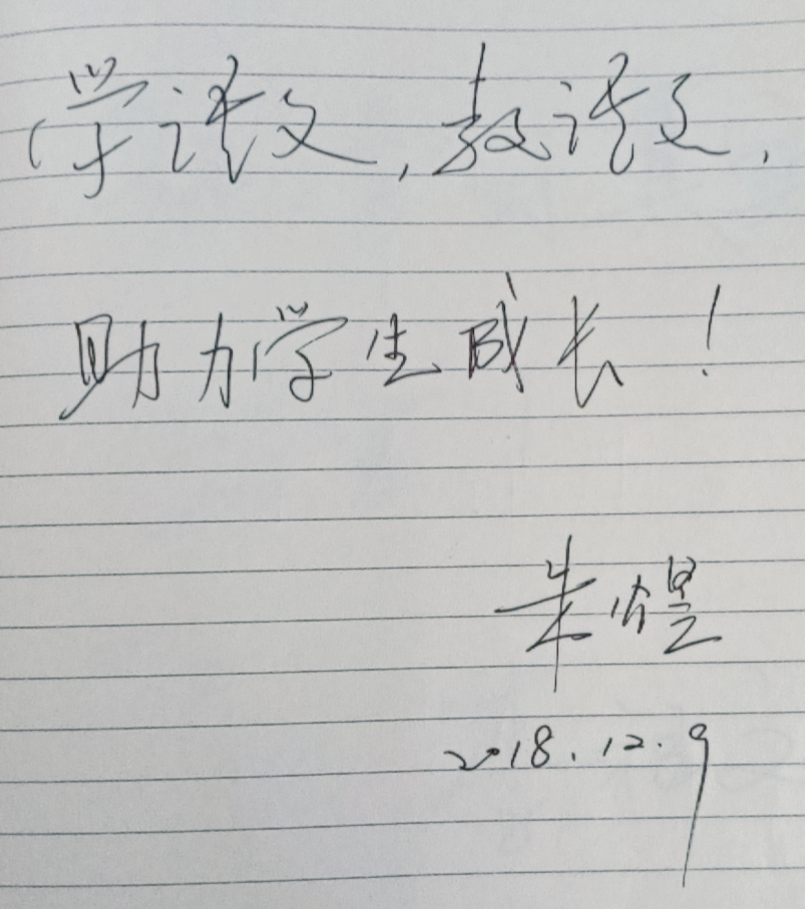 学语文，教语文，
助力学生成长！
朱煜
2018.12.9